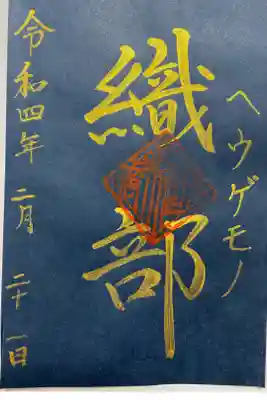 ヘウゲモノ
織部
令和四年 二月 二十一日